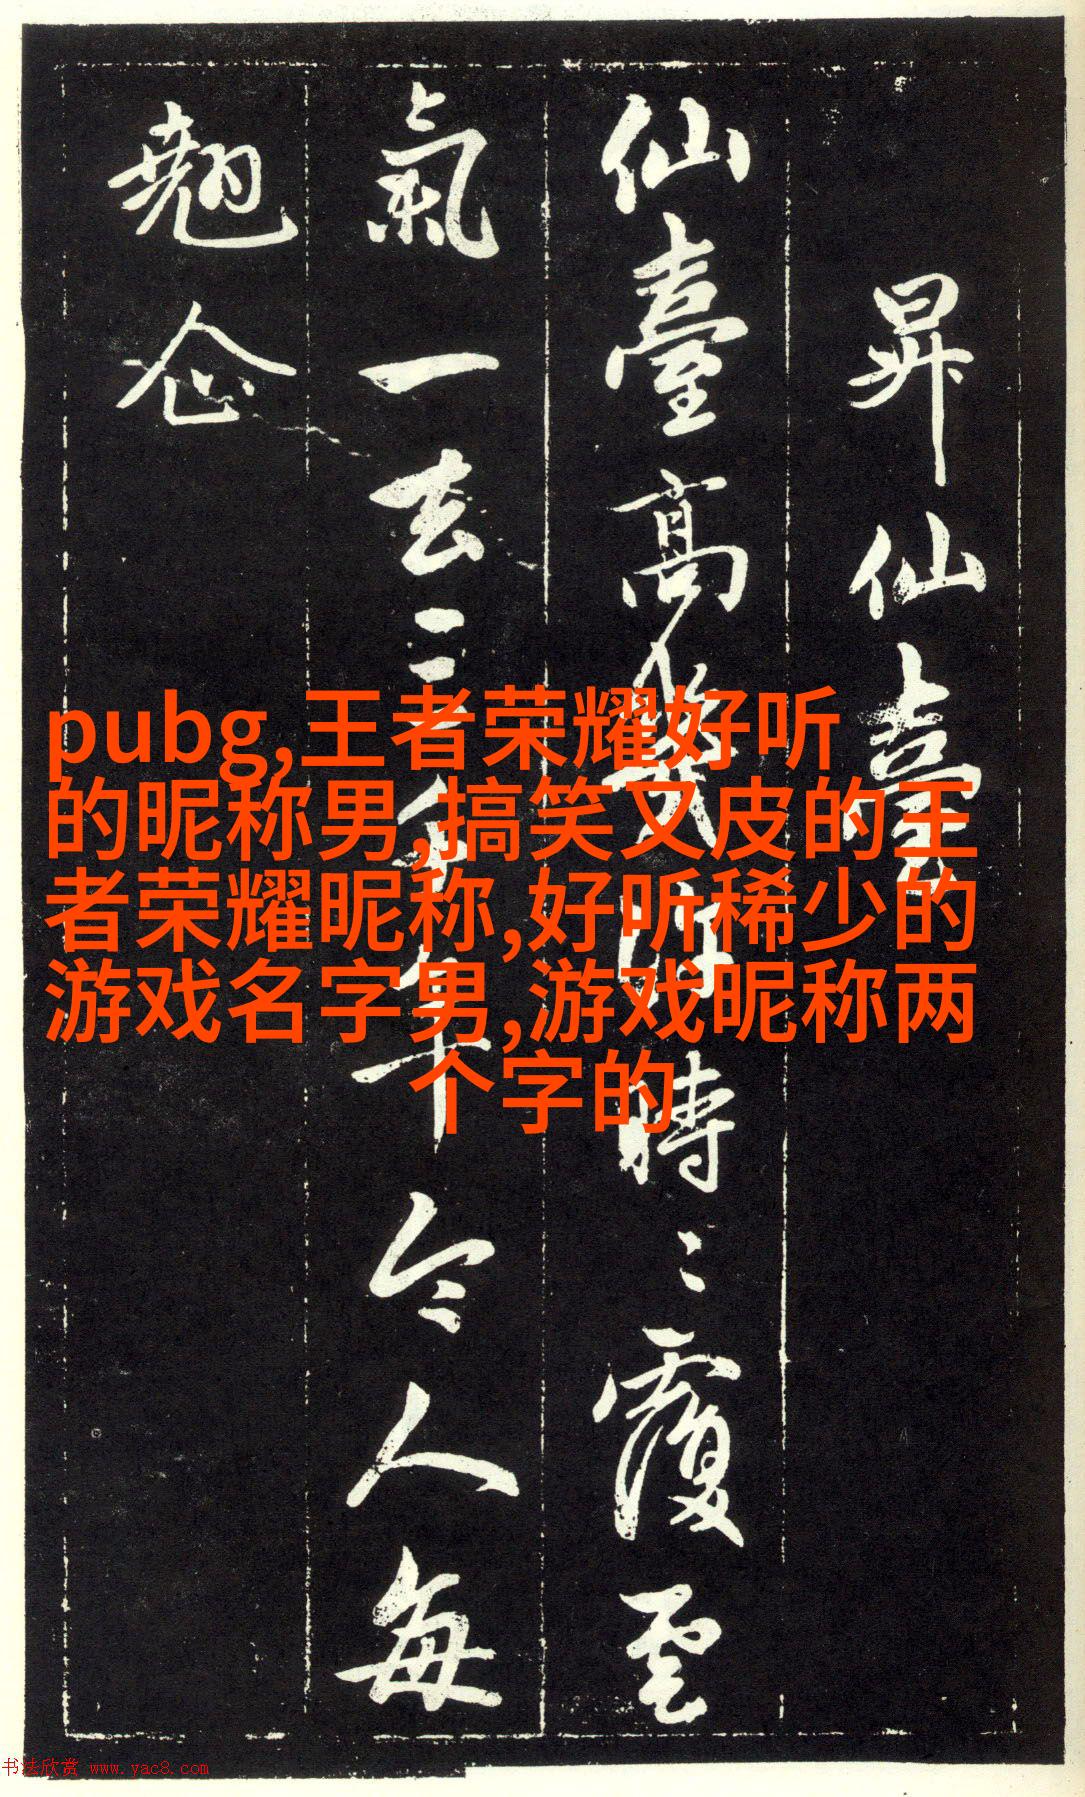 昇仙臺
仙臺高幾許時〻覆雲
氣一去三千年令人每
翹企
pubg,王者荣耀好听
的昵称男,搞笑又皮的王
者荣耀昵称,好听稀少的
游戏名字男,游戏昵称两
个字的
书法欣赏 www.yac8.com